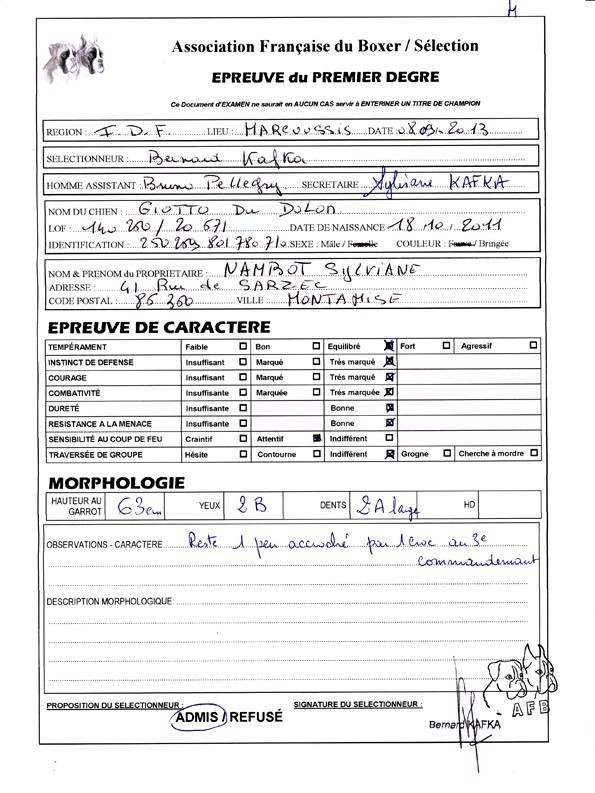 M
Association Française du Boxer / Sélection
EPREUVE du PREMIER DEGRE
Ce Document d'EXAMEN ne saurait en AUCUN CAS servir à ENTERINER UN TITRE DE CHAMPION
REGION : I.D.F. LIEU : MARCOUSSIS DATE 08.09.2013
SELECTIONNEUR : Bernard Kafka
HOMME ASSISTANT : Bruno Pellegry SECRETAIRE Sylviane KAFKA
NOM DU CHIEN : GIOTTO Du DOLON
LOF : 140 250 / 20 671 DATE DE NAISSANCE 18.10.2011
IDENTIFICATION : 250 269 801 780 710 SEXE : Mâle / Femelle COULEUR : Fauve / Bringée
NOM & PRENOM du PROPRIETAIRE : NAMBOT SYLVIANE
ADRESSE : 41 Rue de SARZEC
CODE POSTAL : 86 360 VILLE : MONTAMISE
EPREUVE DE CARACTERE
TEMPÉRAMENT Faible Bon Equilibré Fort Agressif
INSTINCT DE DEFENSE Insuffisant Marqué Très marqué
COURAGE Insuffisant Marqué Très marqué
COMBATIVITÉ Insuffisante Marquée Très marquée
DURETÉ Insuffisante Bonne
RESISTANCE A LA MENACE Insuffisante Bonne
SENSIBILITÉ AU COUP DE FEU Craintif Attentif Indifférent
TRAVERSÉE DE GROUPE Hésite Contourne Indifférent Grogne Cherche à mordre
MORPHOLOGIE
HAUTEUR AU GARROT 63 cm YEUX 2 B DENTS 2A large HD
OBSERVATIONS - CARACTERE Reste 1 peu accroché par 1 croc au 3e
commandemant
DESCRIPTION MORPHOLOGIQUE:
PROPOSITION DU SELECTIONNEUR : SIGNATURE DU SELECTIONEUR :
ADMIS / REFUSÉ
Bernard KAFKA
AFB